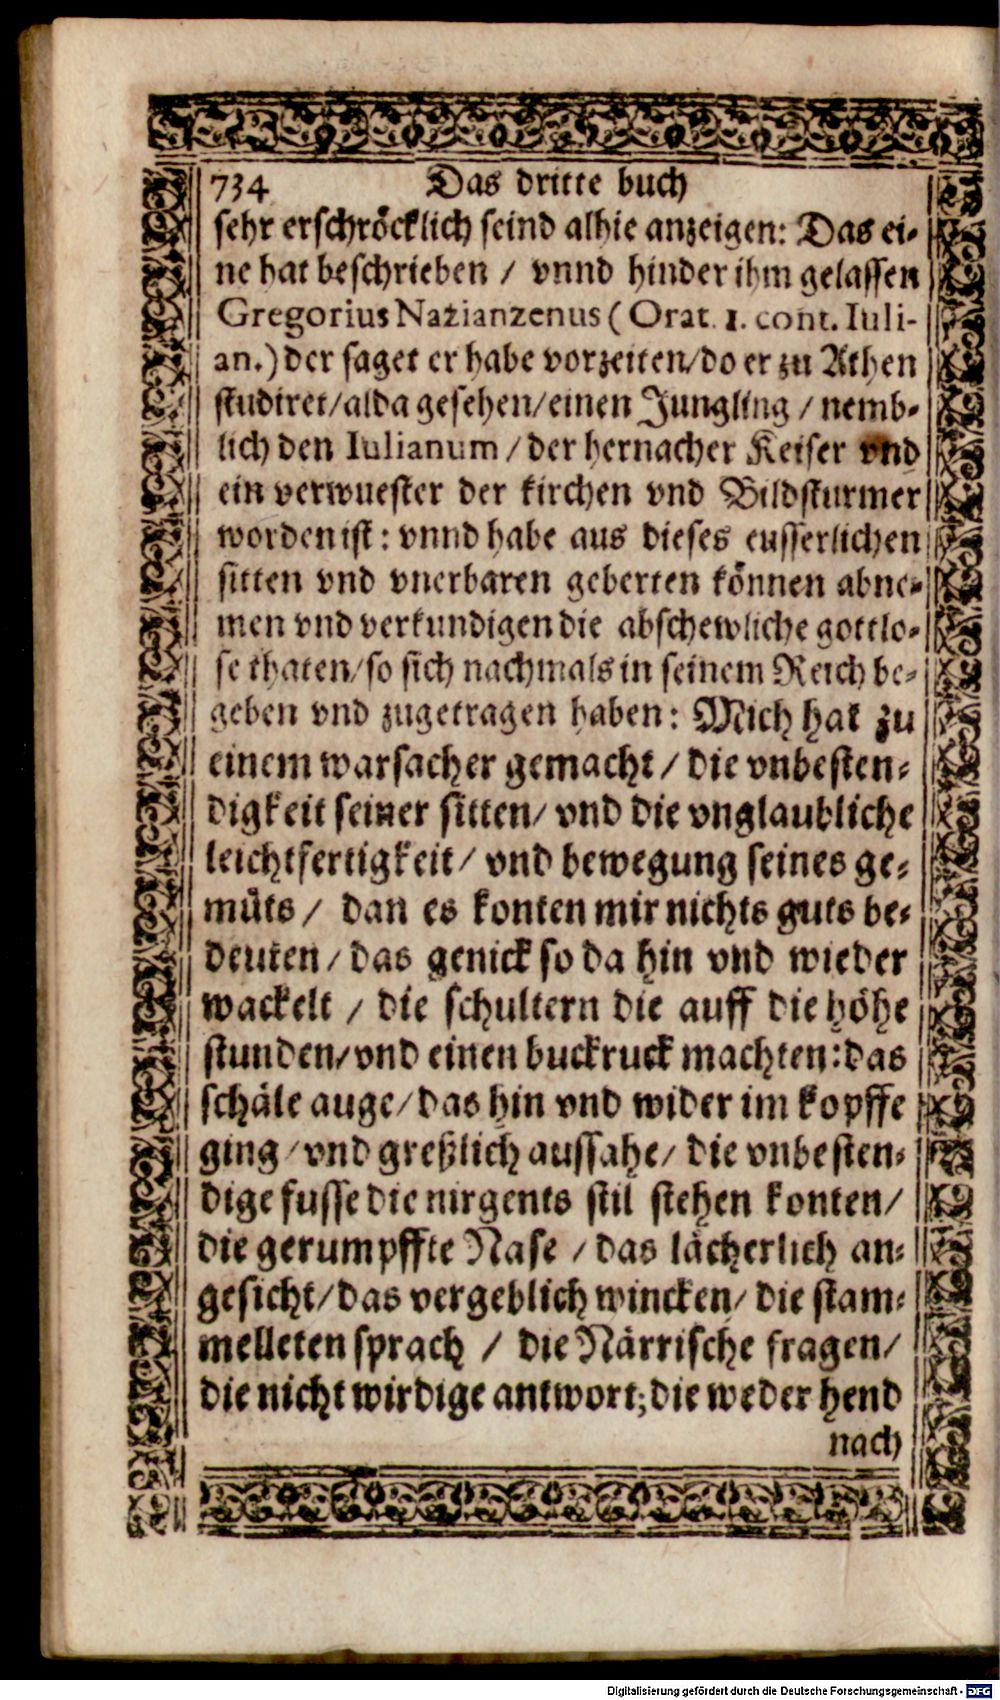 734 Das dritte buch
sehr erschröcklich seind alhie anzeigen: Das ei-
ne hat beschrieben / vnnd hinder ihm gelassen
Gregorius Nazianzenus (Orat. 1. cont. Iuli-
an.) der saget er habe vorzeiten/do er zu Athen
studiret/alda gesehen/einen Jungling / nemb-
lich den Iulianum / der hernacher Keiser vnd
ein verwuester der kirchen vnd Bildsturmer
worden ist: vnnd habe aus dieses eusserlichen
sitten vnd vnerbaren geberten können abne-
men vnd verkundigen die abschewliche gottlo-
se thaten/so sich nachmals in seinem Reich be-
geben vnd zugetragen haben: Mich hat zu
einem warsacher gemacht / die vnbesten-
digkeit seiner sitten/ vnd die vnglaubliche
leichtfertigkeit/ vnd bewegung seines ge-
müts / dan es konten mir nichts guts be-
deuten / das genick so da hin vnd wieder
wackelt / die schultern die auff die höhe
stunden/vnd einen buckruck machten: das
schäle auge/das hin vnd wider im kopffe
ging /vnd greßlich aussahe/ die vnbesten-
dige fusse die nirgents stil stehen konten/
die gerumpffte Nase / das lächerlich an-
gesicht/das vergeblich wincken/ die stam-
melleten sprach / die Närrische fragen/
die nicht wirdige antwort; die weder hend
nach
Digitalisierung gefördert durch die Deutsche Forschungsgemeinschaft - DFG